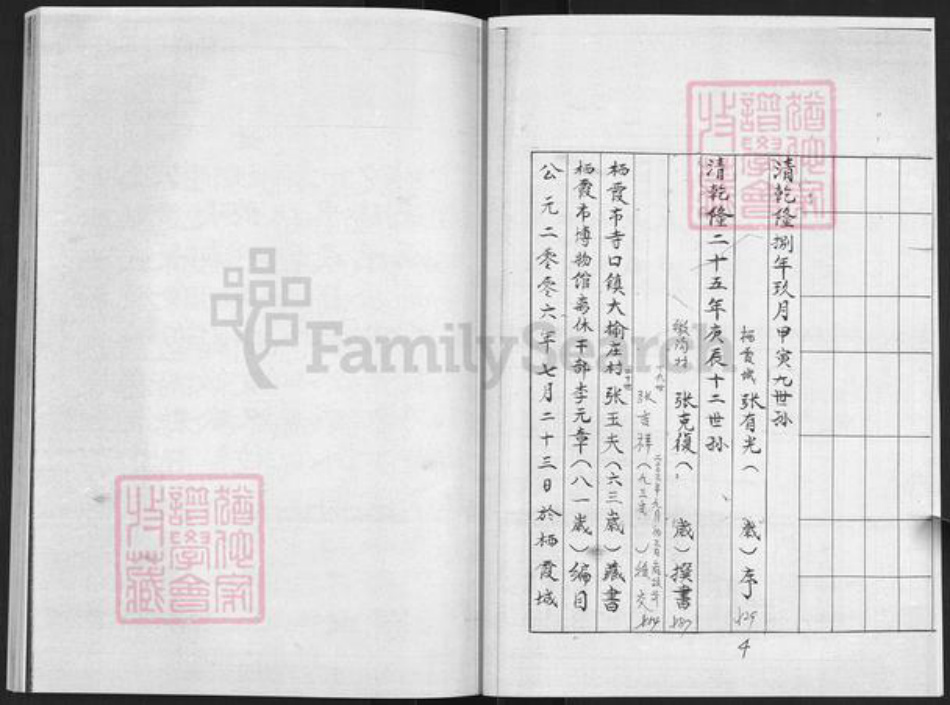 清乾隆捌年玖月甲寅九世孙
栖霞城 张有光（ 岁）序 P29
清乾隆二十五年庚辰十二世孙
张克復（ 岁）撰書
张吉祥（九三岁）
栖霞市寺口镇大榆庄村张玉夫（六三歲）藏書
栖霞市博物馆离休干部李元章（八一歲）编目
公元二零零六年七月二十三日於栖霞城
4
譜學會
收藏
譜學會
收藏
FamilySearch